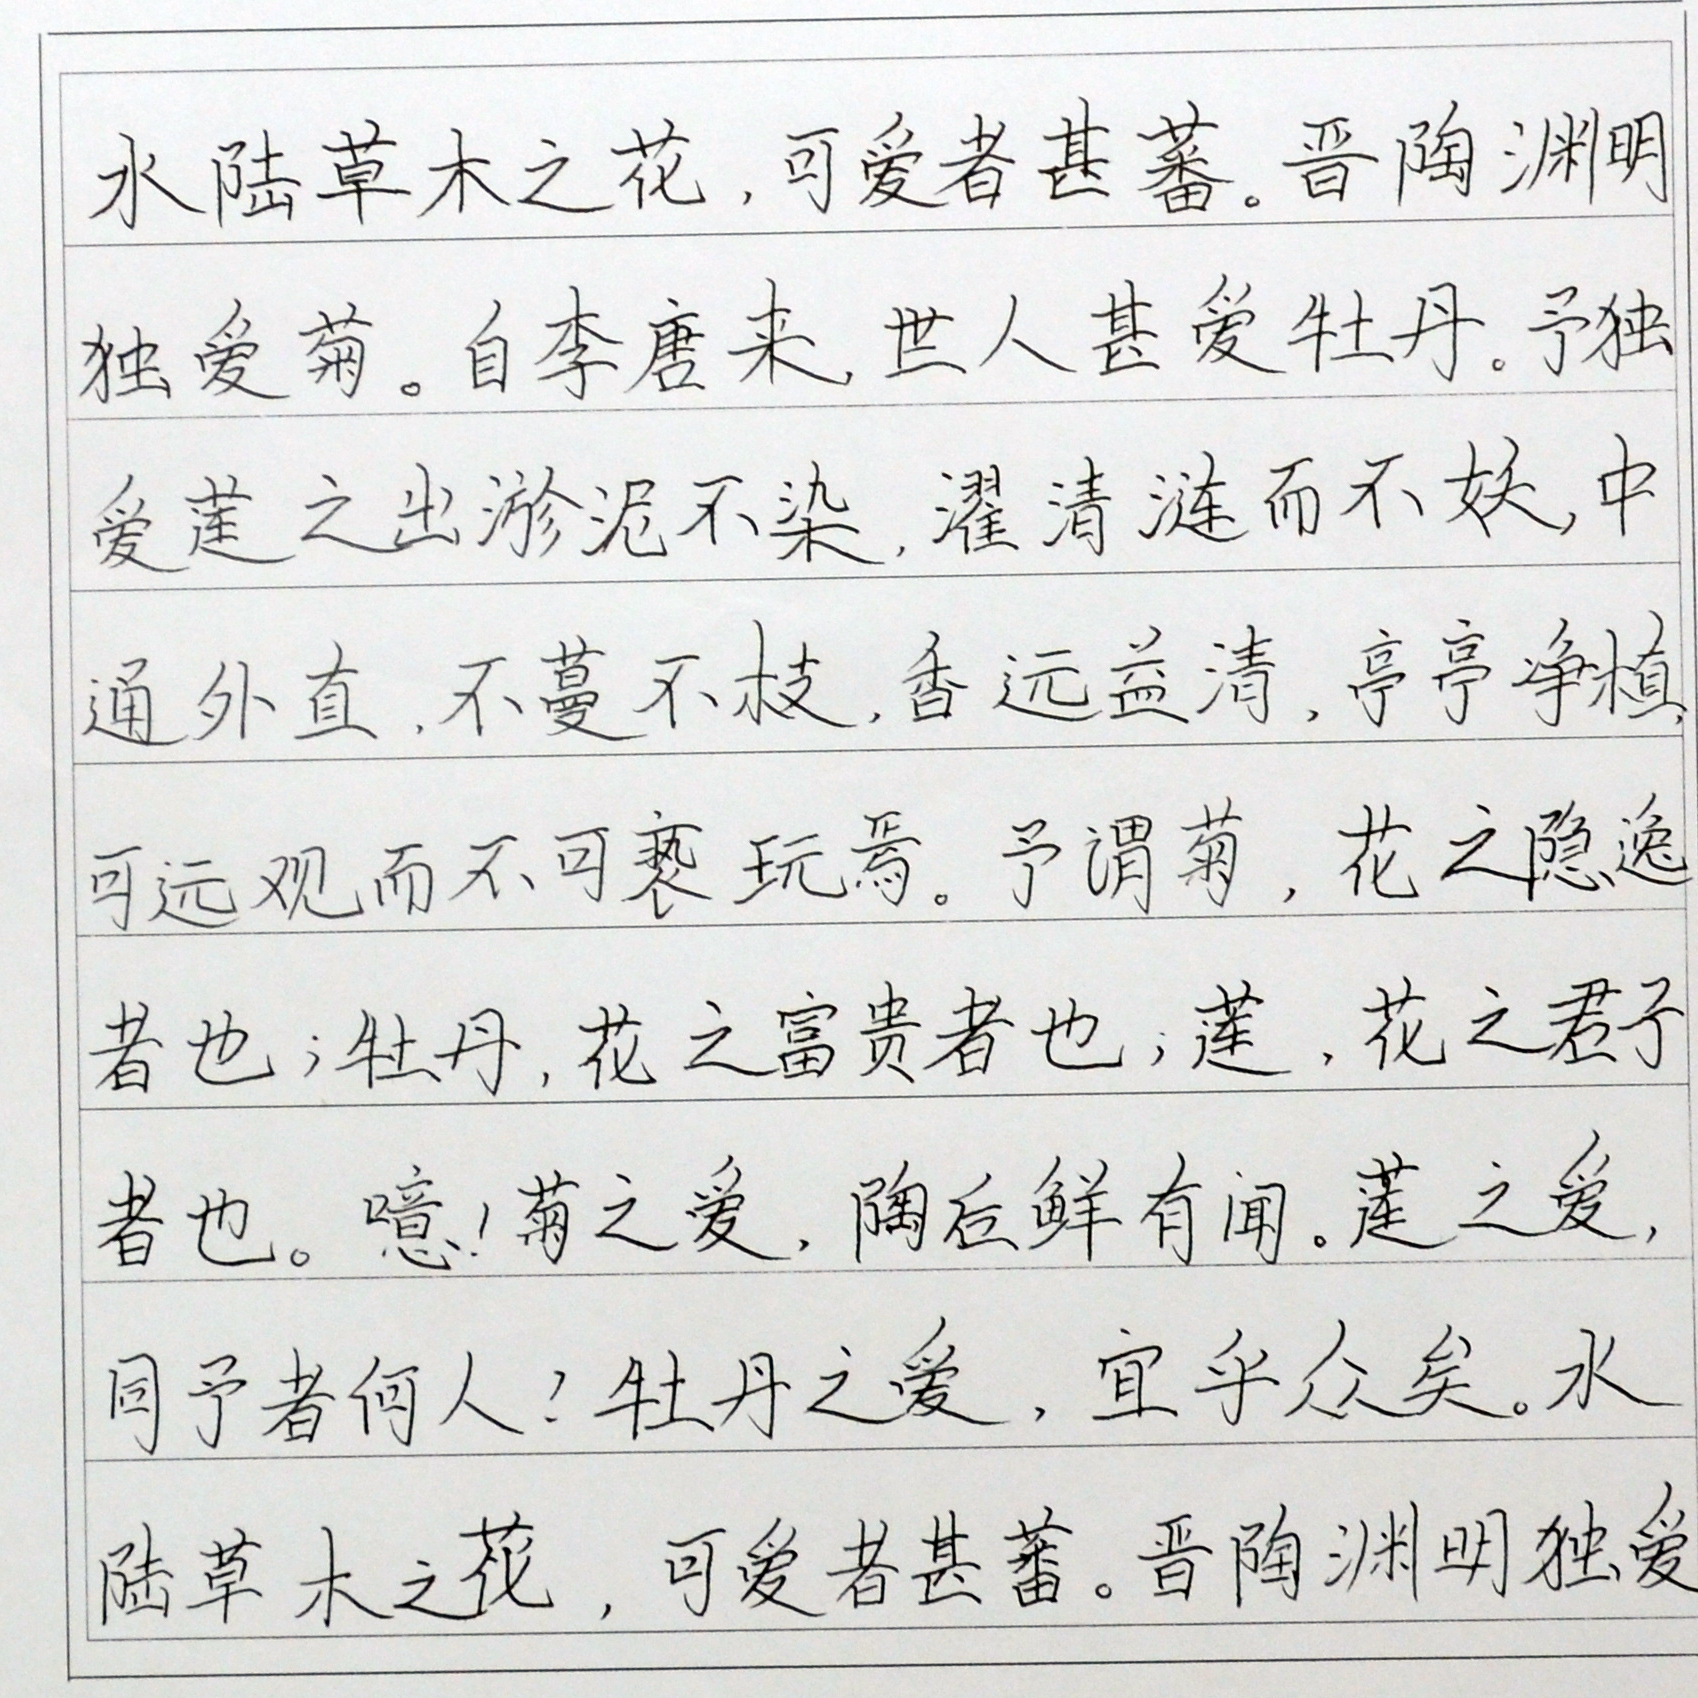 水陆草木之花，可爱者甚蕃。晋陶渊明
独爱菊。自李唐来，世人甚爱牡丹。予独
爱莲之出淤泥不染，濯清涟而不妖，中
通外直，不蔓不枝，香远益清，亭亭净植，
可远观而不可亵玩焉。予谓菊，花之隐逸
者也；牡丹，花之富贵者也；莲，花之君子
者也。噫！菊之爱，陶后鲜有闻。莲之爱，
同予者何人？牡丹之爱，宜乎众矣。水
陆草木之花，可爱者甚蕃。晋陶渊明独爱